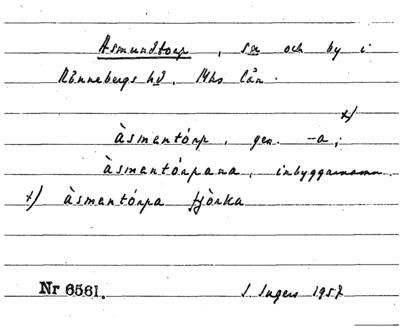 Asmundtorp, sn och by i
Rönnebergs hd, Mhs län.
x)
àsmantórp, gen. -a;
àsmantórpana, inbyggarnamn.
x) àsmantórpa tjörka
Nr 6561. S. Ingers 1957